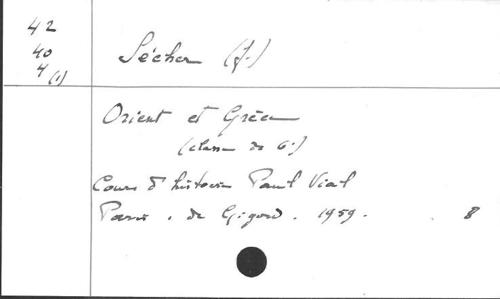 42
40
4 (1)
Sécher (J.)
Orient et Grèce
(classe de 6e)
Cours d'histoire Paul Viat
Paris . de Gigord . 1959 . 8